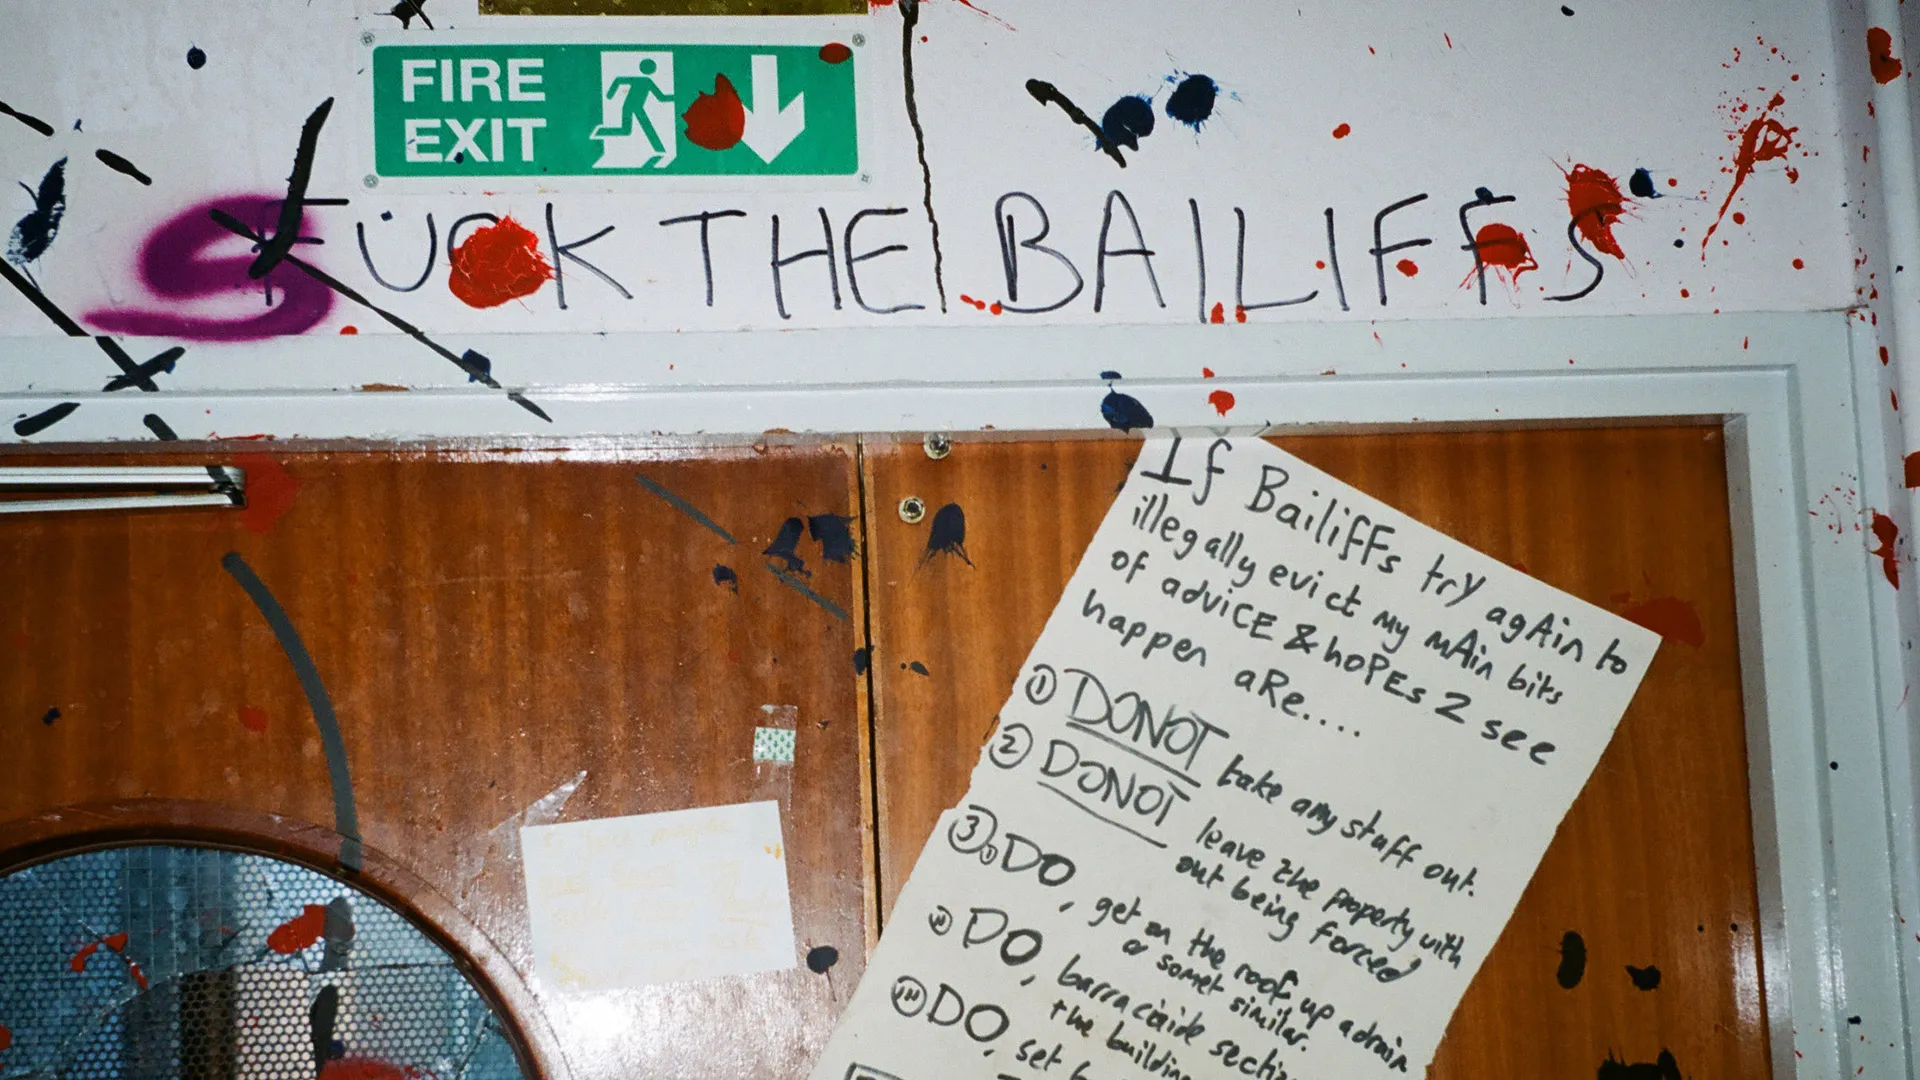 FIRE
EXIT
FUCK THE BAILIFFS
If BailiFFs try agAin to
illegally evict my mAin bits
of adviCE & hoPEs 2 see
happen aRe....
① DONOT take any stuff out.
② DONOT leave the property with
out being forced
③ DO, get on the roof, up a drain
or somet similar.
DO, barracaide sectio
the building
DO, set